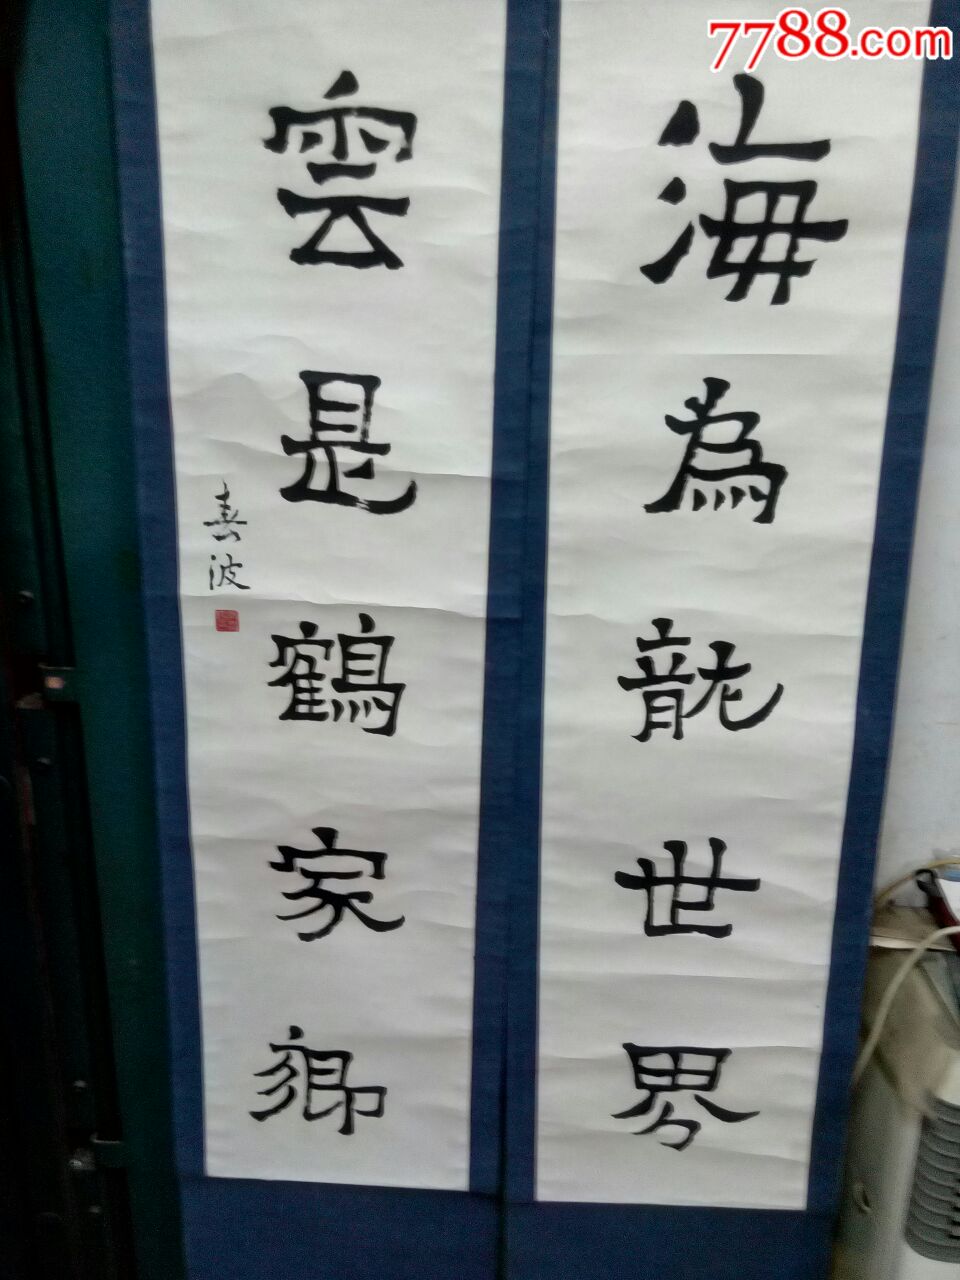 7788.com
海為龍世界
雲是鶴家鄉
春波